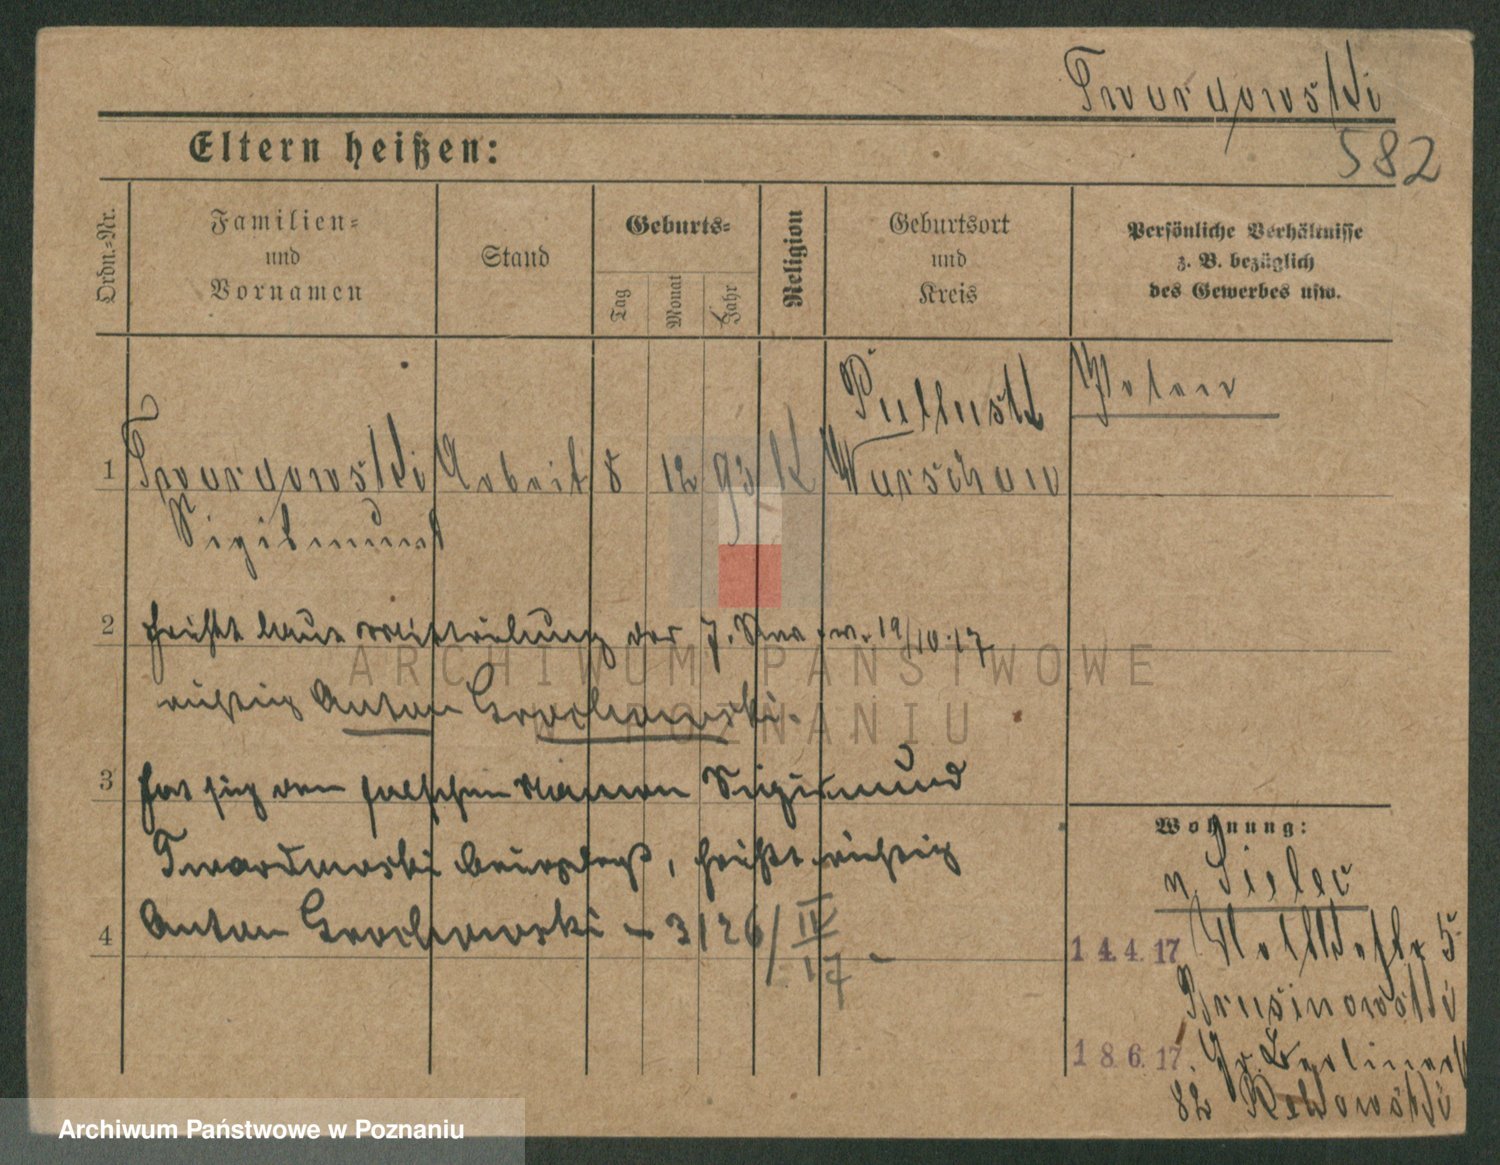 Twardowski
582
Eltern heißen:
Ordn.-Nr.
Familien-
und
Vornamen
Stand
Geburts-
Tag
Monat
Jahr
Religion
Geburtsort
und
Kreis
Persönliche Verhältnisse
z. B. bezüglich
des Gewerbes usw.
Pultusk
Polen
1 Twardowski Arbeit 8 12 93 K Warschau
Sigismund
2 heißt laut Mitteilung der 19/10.17
richtig Anton Grochowski.
3 hat sich den falschen Namen Sigismund
Twardowski beigelegt, heißt richtig
4 Anton Grochowski - 3126/IV 17 -
Wohnung:
n. Sielec
14.4.17 5
Brusinowski
18.6.17. Gr. Berlinerst
82
ARCHIWUM PAŃSTWOWE
W POZNANIU
Archiwum Państwowe w Poznaniu